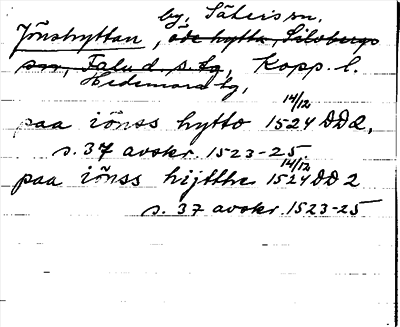 by, Säters sn.
Jönshyttan, ödehytta, Silvbergs
sn, Falu d. s. lg, Kopp. l.
Hedemora lg,
14/12
paa iönss hytto 1524 DD2,
s. 37 avskr. 1523-25
14/12
paa iönss hijtthe 1524 DD 2
s. 37 avskr. 1523-25